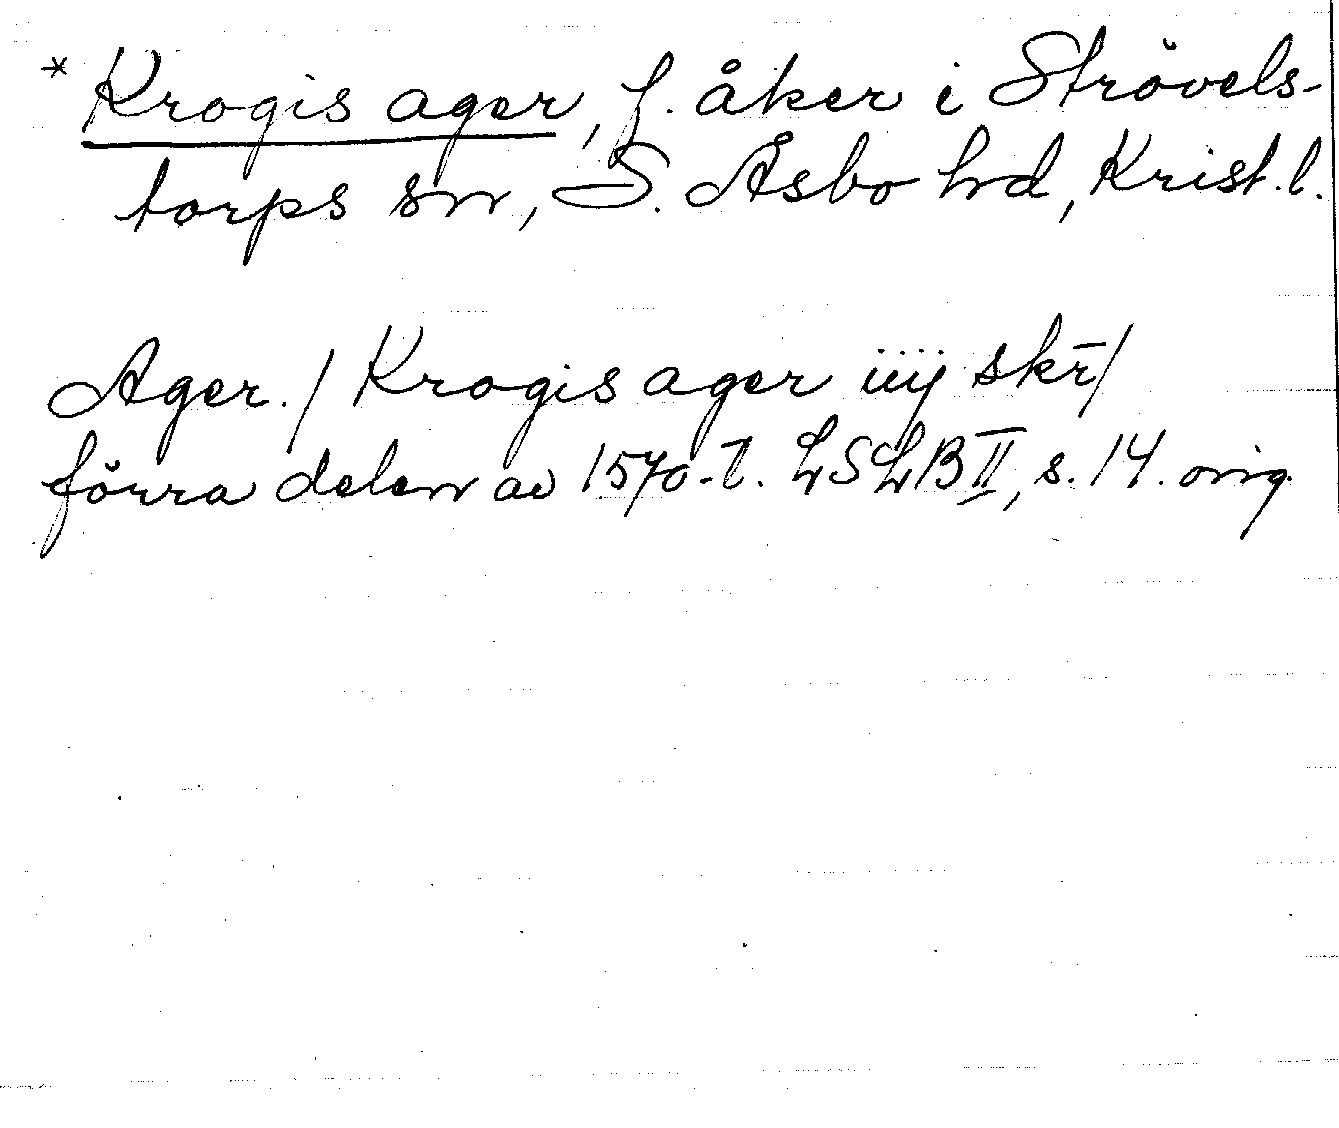 * Krogis ager, f. åker i Strövels-
torps sn, S. Åsbo hd, Krist. l.
Ager. / Krogis ager iiij skr̄ /
förra delen av 1570-t. LSLB II, s. 14. orig.